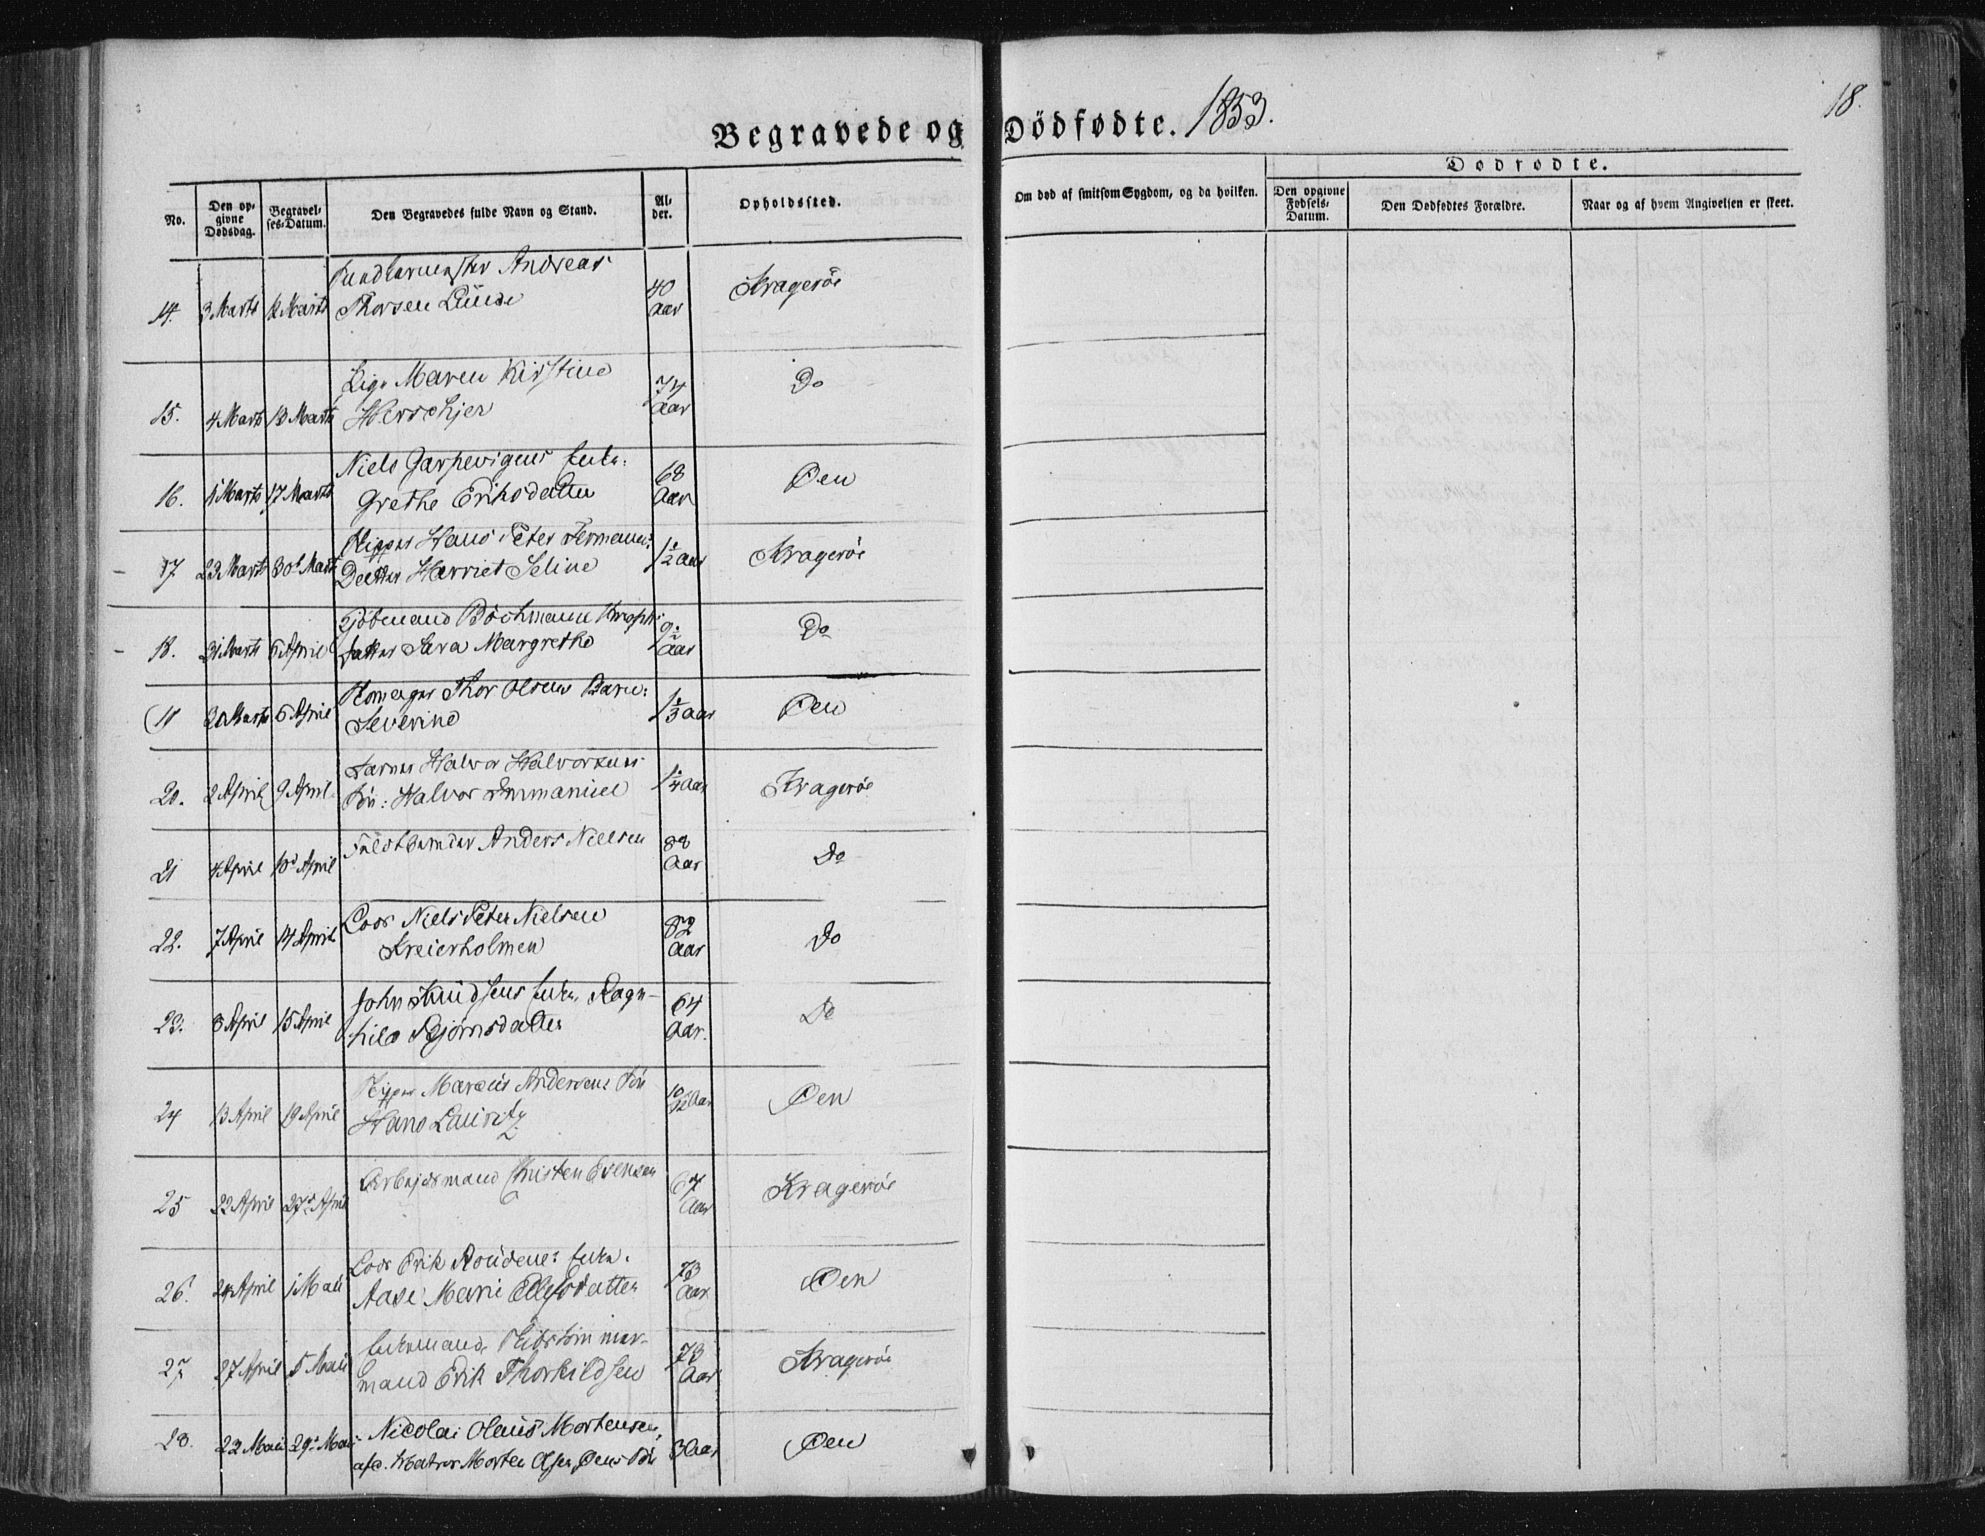 Begravede og Dödfødte. 1853.
18.
No.
Den opgivne Dødsdag.
Begravelses-Datum.
Den Begravedes fulde Navn og Stand.
Alder.
Opholdssted.
Om død af smitsom Sygdom, og da hvilken.
Dødfødte.
Den opgivne Fødsels-Datum.
Den Dødfødtes Forældre.
Naar og af hvem Angivelsen er skeet.
14. 3 Marts 12 Marts Andreas Thorsen Lunde 40 Aar Kragerøe
15. 4 Marts 13 Marts Maren Kirstine 74 Aar Do
16. Marts 17 Marts Niels Garpevigens Enke: Grethe Eriksdatter 68 Aar Øen
17 23 Marts 30 Marts Hans Peter Datter Harriet Seline 1 1/2 Aar Kragerøe
18. 31 Marts 6 April Datter Sara Margrethe Aar Do
Marts 6 April Thor Olsens Barn: Severine 1 1/3 Aar Øen
20. 2 April 9 April Halvor Halvorsens Søn: Halvor Emmanuel 1 1/4 Aar Kragerøe
21 4 April 10 April Anders Nielsen 88 Aar Do
22. 7 April 14 April Lods Niels Peter Nielsen Kreierholmen 82 Aar Do
23. 8 April 15 April John Knudsens Enke, Ragnhild Bjørnsdatter 64 Aar. Do
24 13 April 19 April Skipper Marcus Andersens Søn Hans Lauritz 10/12 Aar Øen
25 22 April 27 April Arbejdsmand Christen Evensen 67 Aar Kragerøe
26. 24 April 1 Maii Lods Erik Enke. Aase Marie Ellefsdatter 73 Aar Øen
27 27 April 5 Maii Enkemand, Skibstømmermand Erik Thorkildsen 73 Aar Kragerøe
28. 22 Maii 29 Maii Nicolai Olaus Mortensen, afd. Matros Morten Olsen Øens Søn 3 Aar Øen